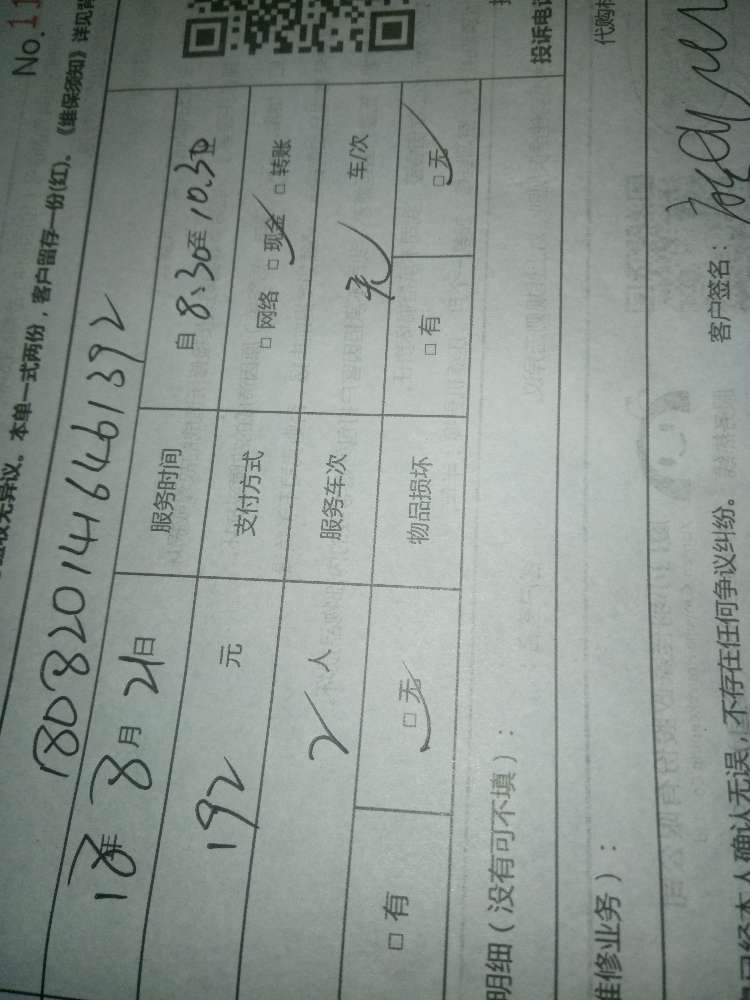 No.11
无异议。本单一式两份，客户留存一份(红)。《维保须知》详见背
180820141646461392
18年 8月 21日 服务时间 自 8:30 至 10:30 止
192 元 支付方式 □ 网络 □ 现金 □ 转账
2 人 服务车次 无 车/次
□ 有 □ 无 物品损坏 □ 有 □ 无
投诉电话
明细（没有可不填）：
维修业务）：
代购
已经本人确认无误，不存在任何争议纠纷。 客户签名：